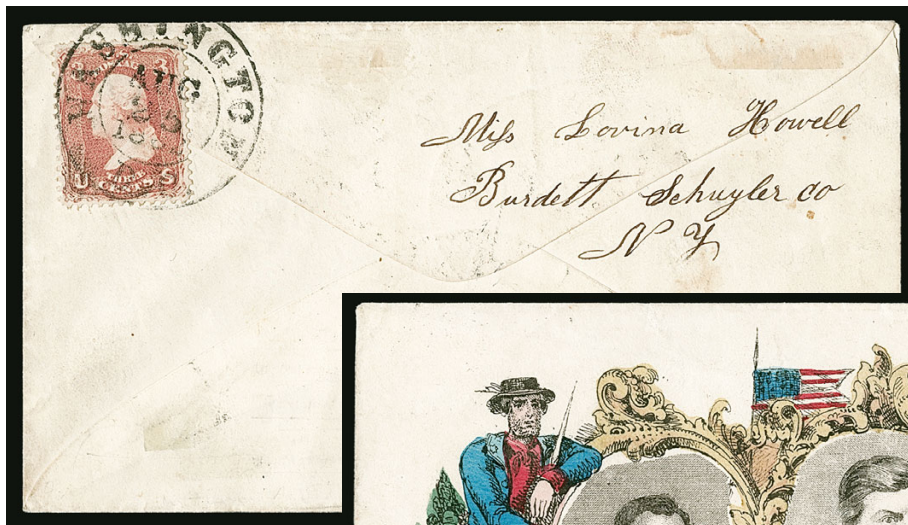 WASHINGTON
AUG
3 3
U THREE S
CENTS
Miss Lovina Howell
Burdett Schuyler co
N Y